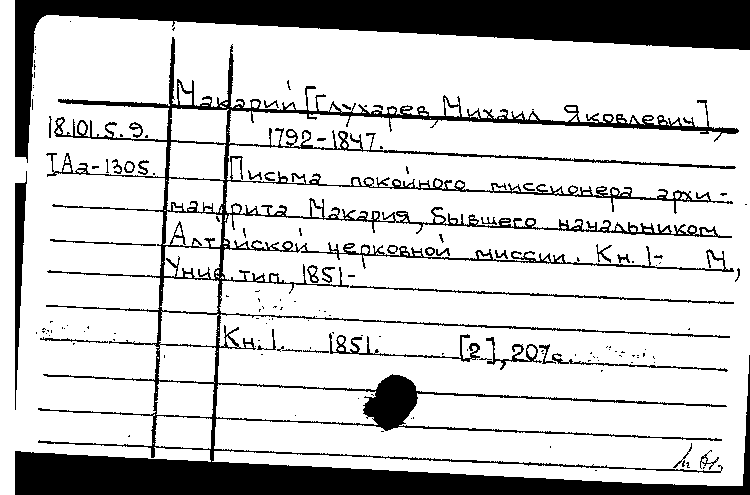 Макарий [Глухарев, Михаил Яковлевич],
18.101.5.9. 1792-1847.
IАа-1305. Письма покойного миссионера архи-
мандрита Макария, бывшего начальником
Алтайской церковной миссии. Кн. 1- М.,
Унив. тип., 1851-
Кн. 1. 1851. [2], 207 с.